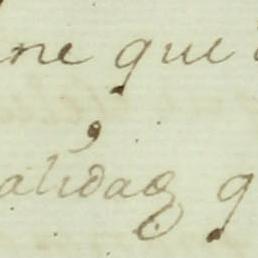 ne que
alidad q